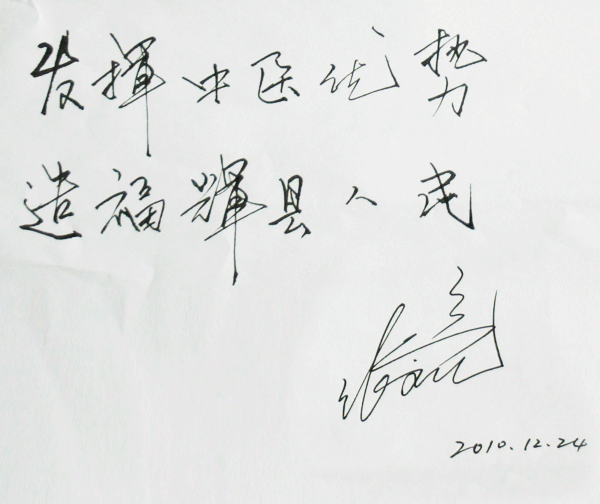 发揮中医优势
造福辉県人民
2010.12.24